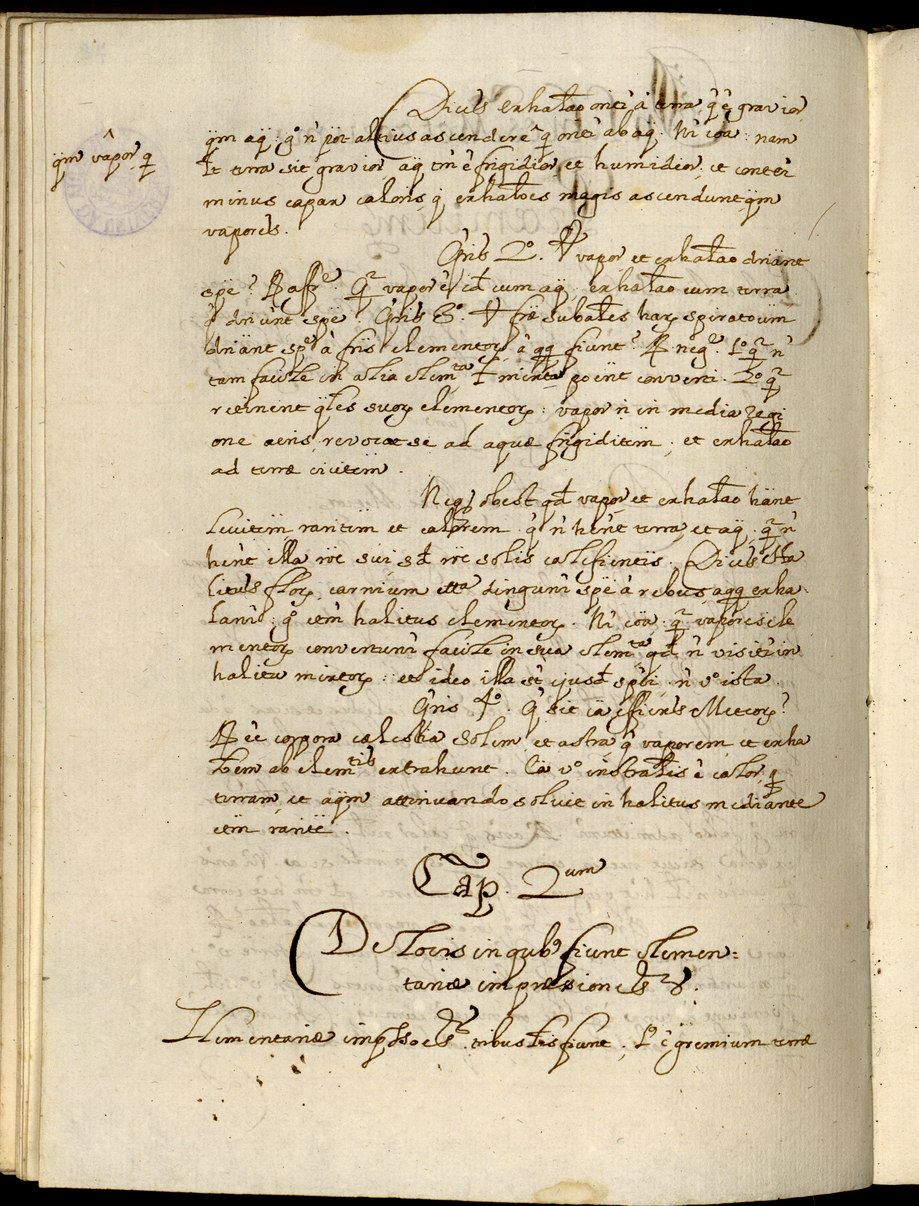 Dices exhalao oritr à terra q̃ ẽ gravior
q̃m aq̃; gº ñ pot altius ascendere q̃ oritr ab aq̃. Nr̃ cõa: nam
q̃m vapor q̃
lt terra sit gravior aq̃ tm̃ ẽ frigidior et humidior et conter
minus capax caloris, q̃ exhalões magis ascendunt q̃m
vapores.
Q̃ris 2º. vapor et exhalao driãnt
spẽ? R aff.e q̃r vapor ẽ id cum aq̃ exhalao cum terra
q̃ driunt spẽ. Q̃ris 3º. fræ subales har spiratoum
driãnt spẽ à friis elementor à qq fiunt? R neg.e 1º q̃r ñ
tam facile in alia elem.ta mixta poẽnt converti. 2º q̃r
retinent q̃tes suor elementor: vapor ñ in media regi
one aeris, revocat se ad aquæ frigiditẽm; et exhalao
ad terræ sicitem.
Neq obest qd vapor et exhalao hãnt
levitẽm raritẽm et calorem q̃ ñ hent terra et aq̃, q̃r ñ
hent illa roe sui sd roe solis calefientis. Dices
halitus flor, carnium distinguunr spẽ à rebus a qq exha
lanr: gº etm̃ halitus elementor. Nr̃ cõa: q̃r vapores ele
mentor convertunr facile in sua elem.ta qd ñ visitr in
halitu mixtor: et ideo illa st ejusd spẽi ñ vº ista.
Q̃ris 4º. Q̃ sit cã efficiens Meteor?
R ẽe corpora cælestia solem et astra q̃ vaporem et exha
lõem ab elem.tis extrahunt. Cã vº instralis ẽ calor q̃
terram et aq̃m attenuando solvit in halitus mediante
etm̃ raritẽ.
Cap. 2um
De locis in qubs fiunt elemen=
tariæ impræsiones.
Elementariæ impssoes tribus locis fiunt. 1º ẽ gremium terræ